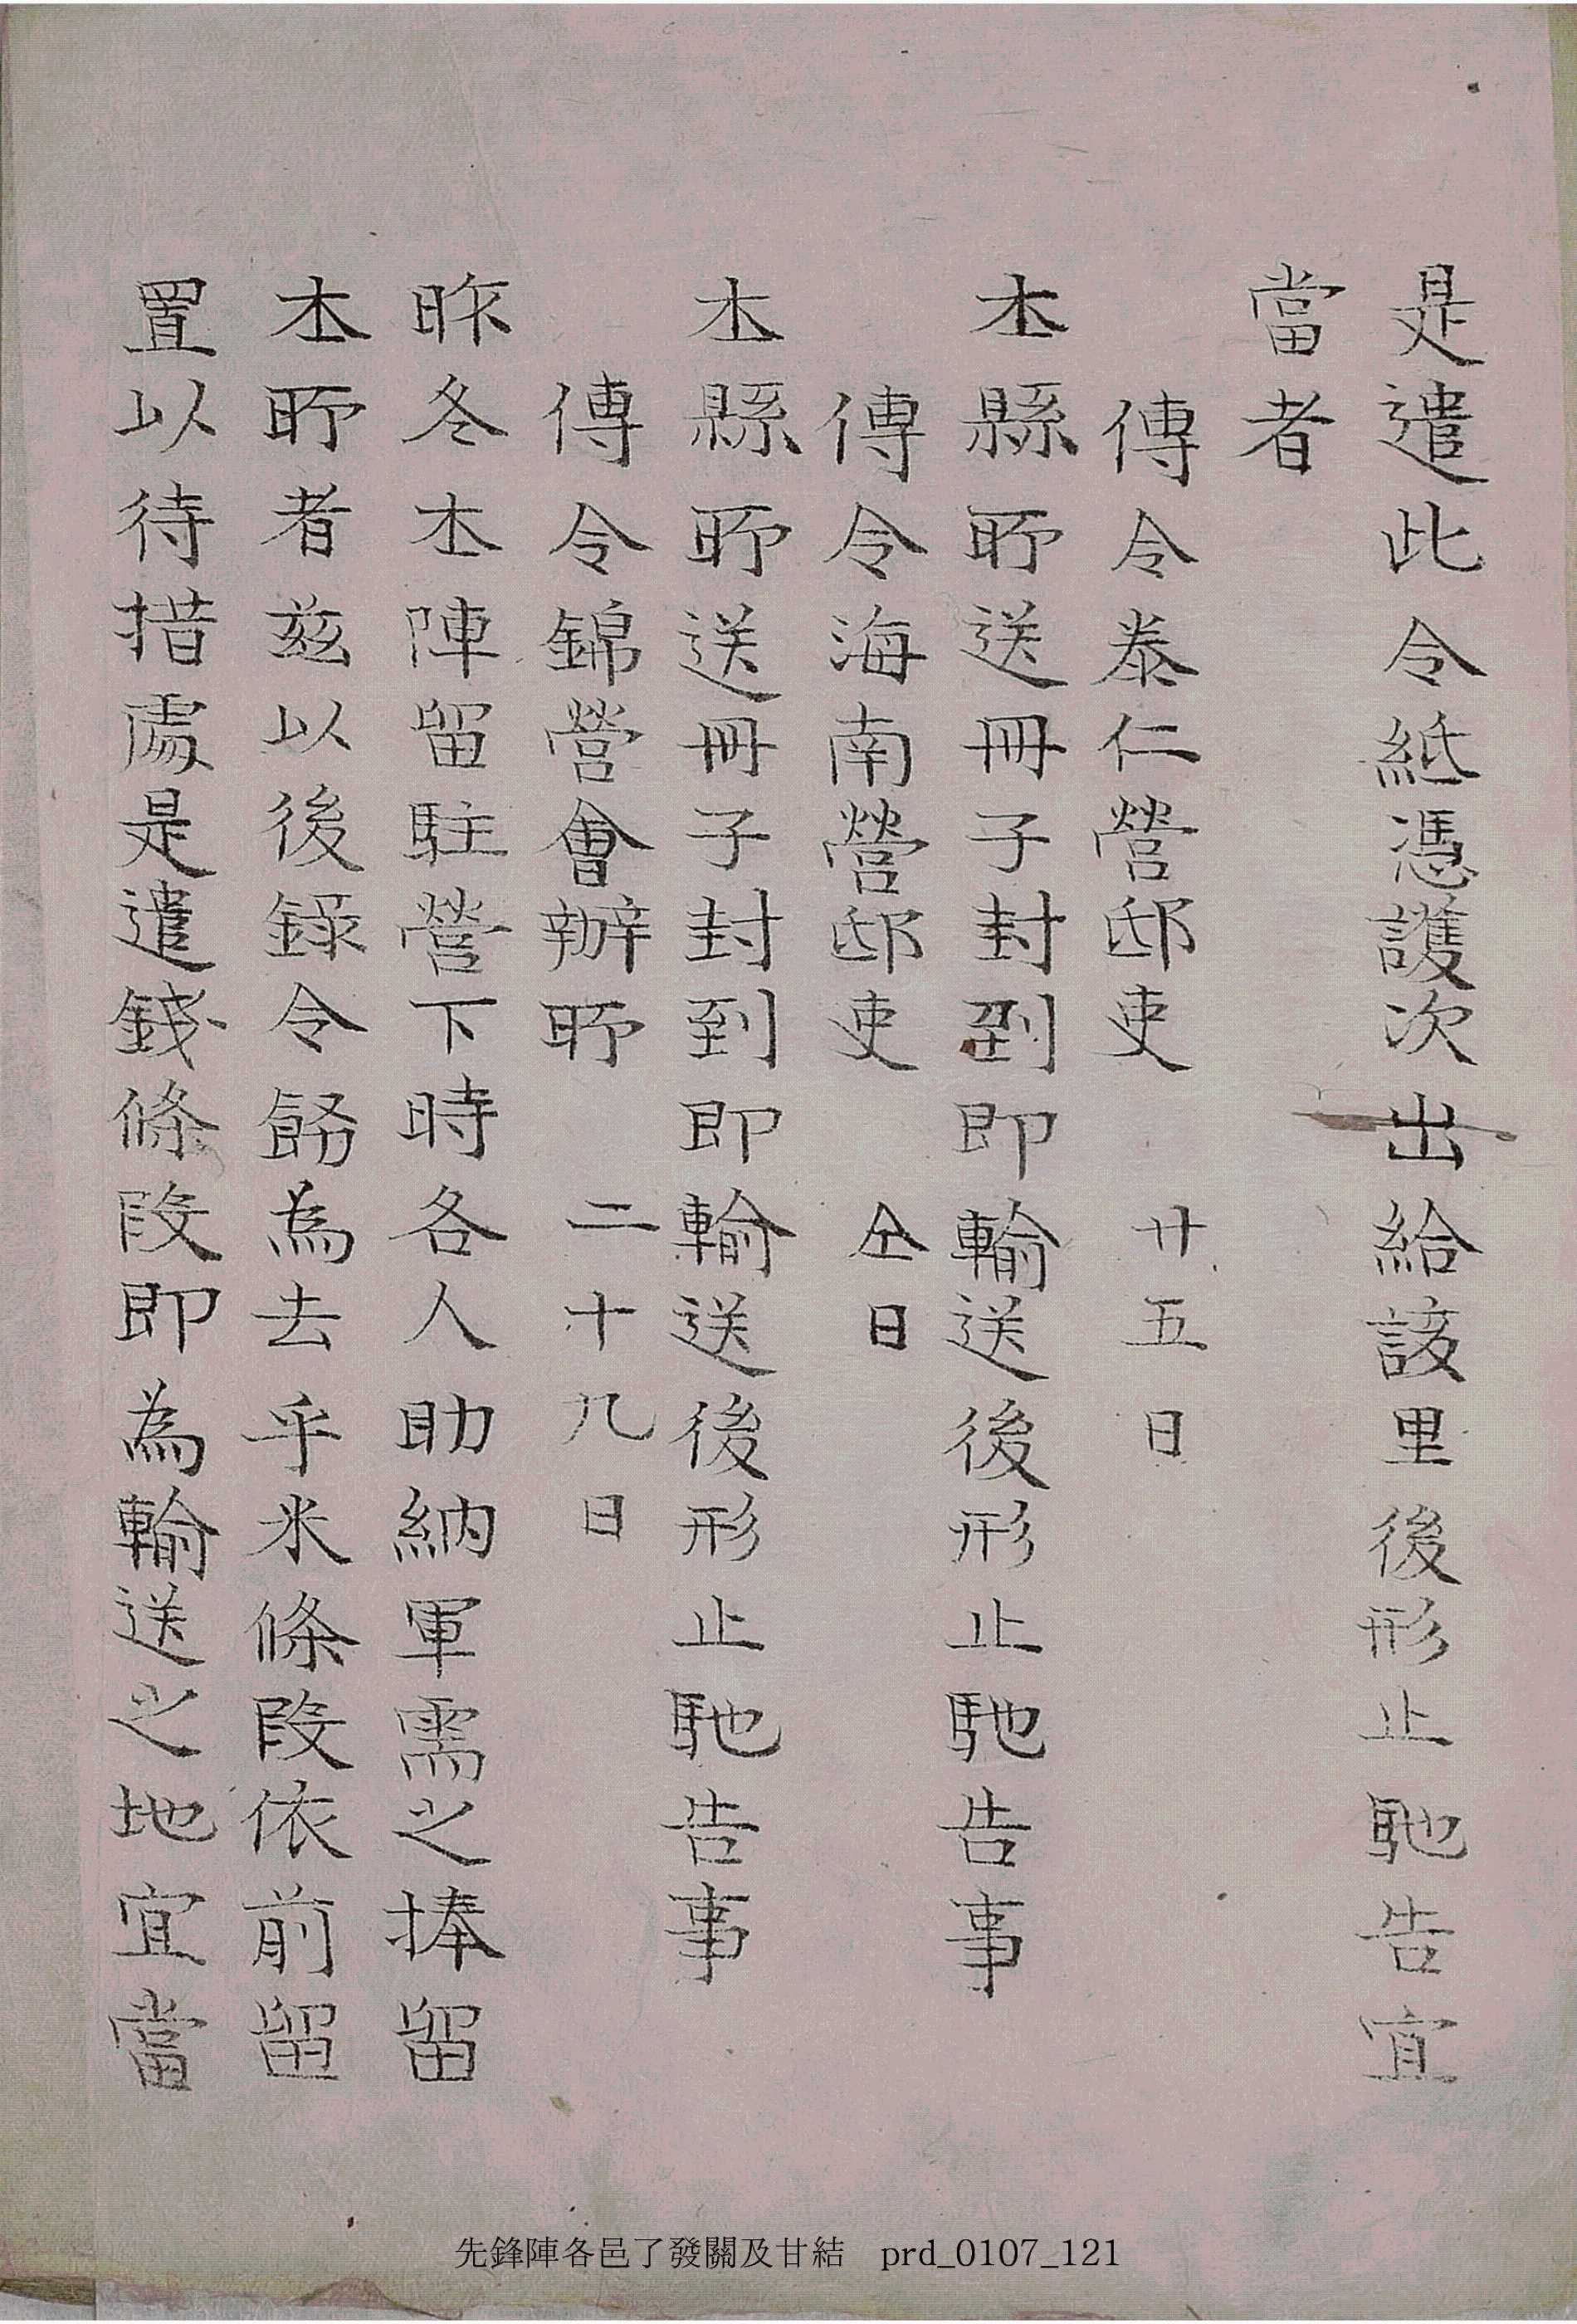 是遣此令紙憑護次出給該里後形止馳告宜
當者
傳令泰仁營邸吏 廿五日
本縣所送冊子封到即輸送後形止馳告事
傳令海南營邸吏 仝日
本縣所送冊子封到即輸送後形止馳告事
傳令錦營會辦所 二十八日
昨冬本陣留駐營下時各人助納軍需之捧留
本所者玆以後錄令飭為去乎米條段依前留
置以待措處是遣錢條段即為輸送之地宜當
先鋒陣各邑了發關及甘結 prd_0107_121